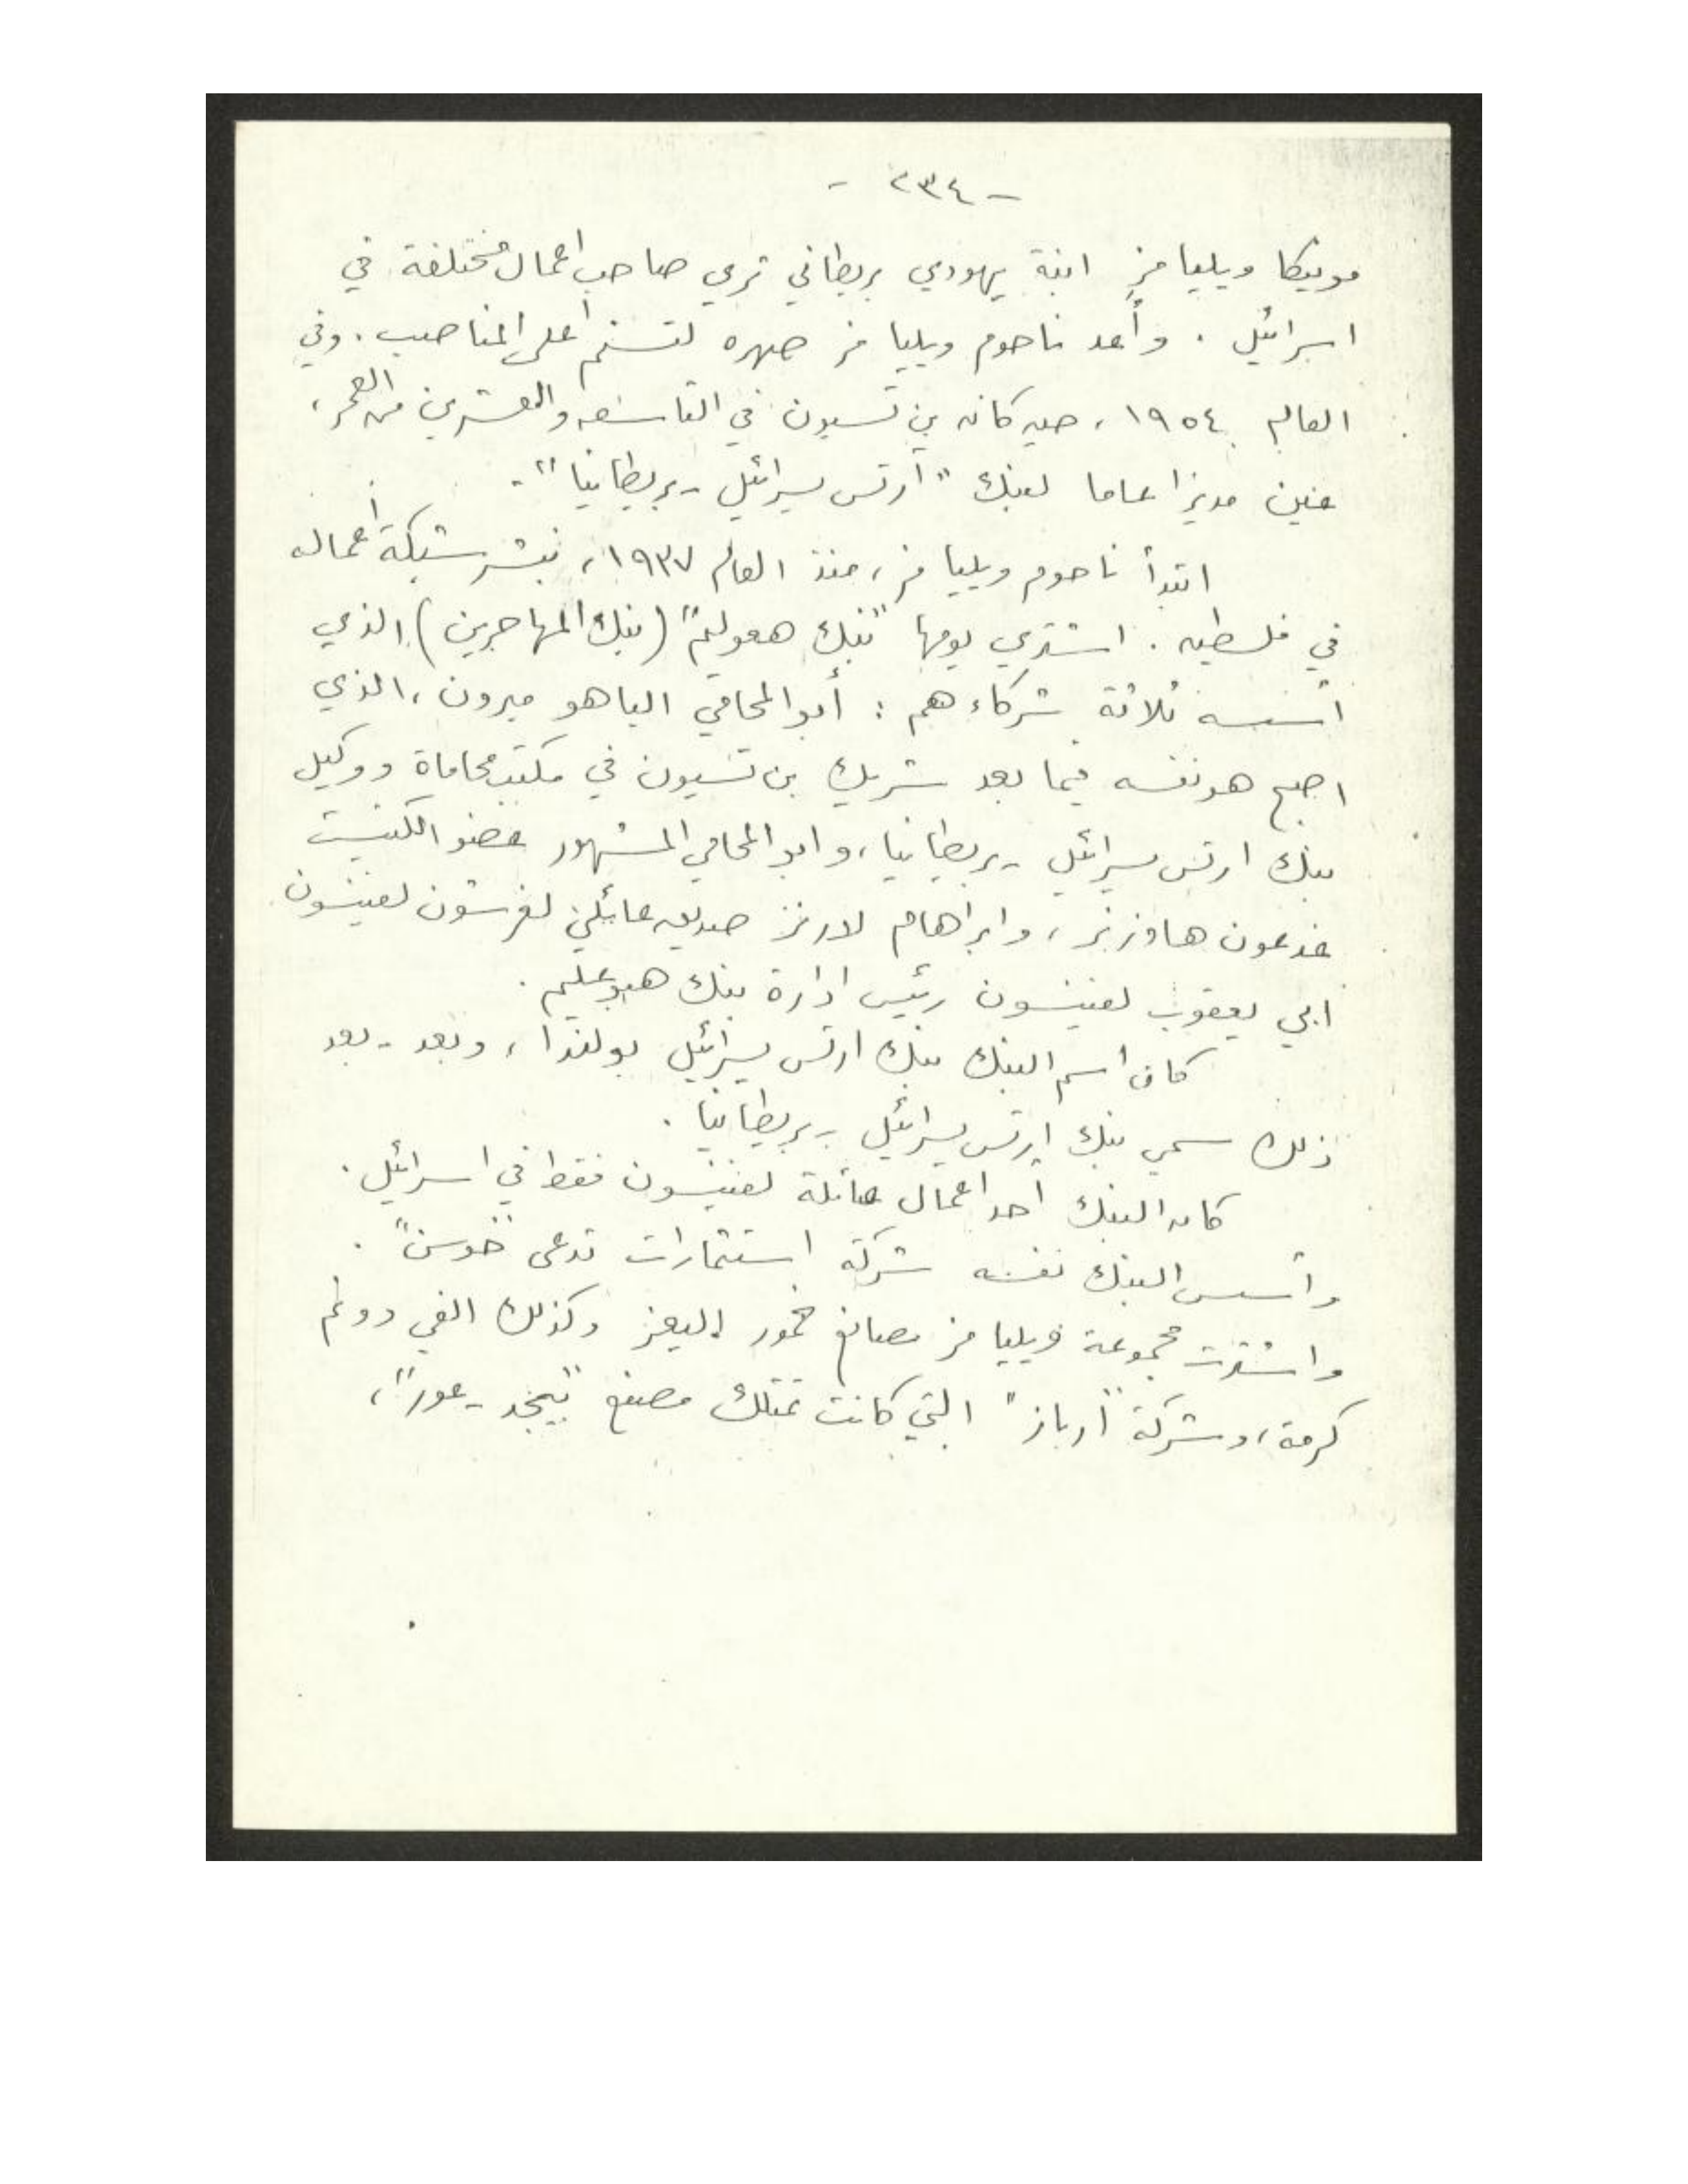 - ٢٣٤ -
مونيكا ويليامز ابنة يهودي بريطاني ثري صاحب اعمال مختلفة في
اسرائيل . وأعد ناحوم ويليامز صهره لتسنم أعلى المناصب . وفي
العالم ١٩٥٤ ، حين كان بن تسيون في التاسعه والعشرين من العمر ،
عين مديرا عاما لبنك " أرتس يسرائيل - بريطانيا " .
ابتدأ ناحوم ويليامز ، منذ العام ١٩٣٧ ، بنشر شبكة أعماله
في فلسطين . اشترى يومها " بنك هعوليم " ( بنك المهاجرين ) الذي
أسسه ثلاثة شركاء هم : أبو المحامي الياهو ميرون ، الذي
اصبح هو نفسه فيما بعد شريك بن تسيون في مكتب محاماة ووكيل
بنك ارتس يسرائيل - بريطانيا ، وابو المحامي المشهور عضو الكنيست
غدعون هاوزنر ، وابراهام لارنز صديق عائلي لغرشون لفينسون
ابي يعقوب لفينسون رئيس ادارة بنك هبوعليم .
كان اسم البنك بنك ارتس يسرائيل بولندا ، وبعد - بعد
ذلك سمي بنك ارتس يسرائيل - بريطانيا .
كان البنك أحد اعمال عائلة لفينسون فقط في اسرائيل .
وأسس البنك نفسه شركة استثمارات تدعى " خوسن " .
واشترت مجموعة ويليامز مصانع خمور اليعزر وكذلك الفي دونم
كرمة ، وشركة " أرباز " التي كانت تمتلك مصنع " بيجد - عور " ،